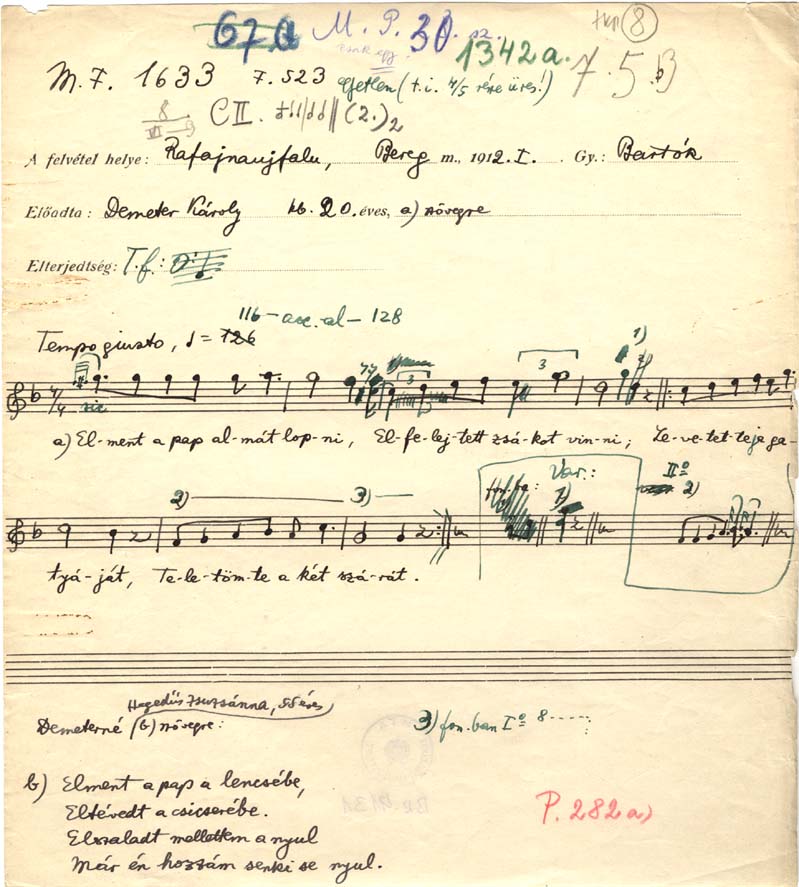 67a M. P. 30. sz.
1342a.
8
M. F. 1633 F. 523 egetlen (t. i. 4/5 része üres!) 7. 5. b)
8 C II. (2.)2
A felvétel helye: Rafajnaujfalu, Bereg m., 1912. I. Gy.: Bartók
Előadta: Demeter Károly kb. 20. éves, a) szövegre
Elterjedtség: T. f.:
116 – acc. al – 128
Tempo giusto, = 126
3 3 1)
sic
a) El-ment a pap al-mát lop-ni, El-fe-lej-tett zsá-kot vin-ni; Le-ve-tet-te je ga-
2) 3) fon. ba: Var.: 1) IIº 2)
tyá-ját, Te-le-töm-te a két szá-rát.
Hegedűs Zsuzsánna, 55 éves
Demeterné (b) szövegre:
3) fon. ban Iº 8
b) Elment a pap a lencsébe,
Eltévedt a csicserébe.
Elszaladt mellettem a nyul
Már én hozzám senki se nyul.
P. 282a)